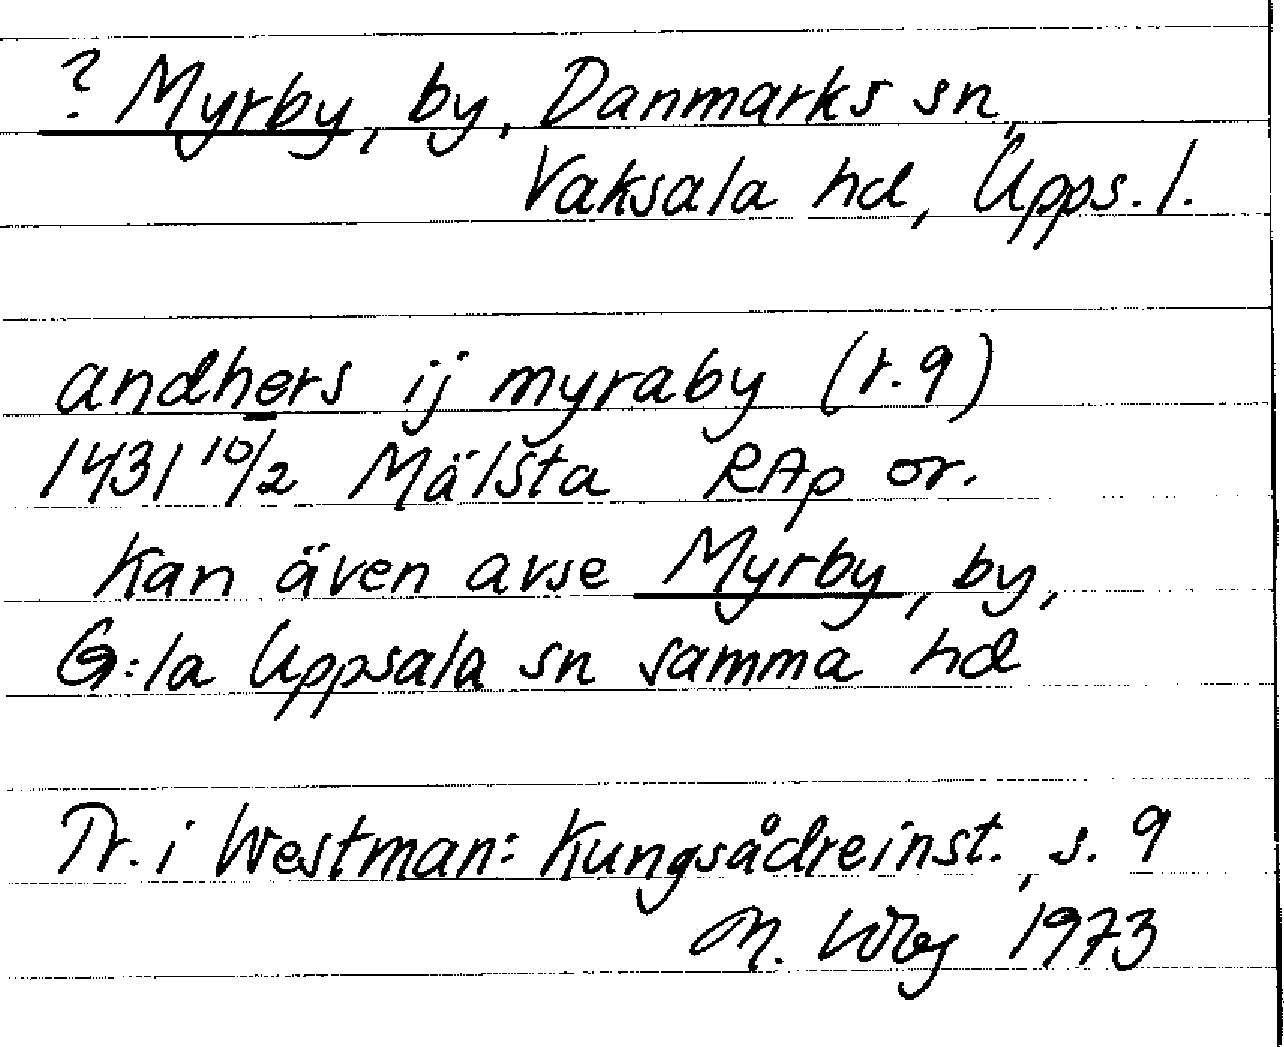 ? Myrby, by, Danmarks sn,
Vaksala hd, Upps. l.
andhers ij myraby (r. 9)
1431 10/2 Mälsta RAp or.
Kan även avse Myrby, by,
G:la Uppsala sn samma hd
Tr. i Westman: Kungsådreinst., s. 9
M. 1973